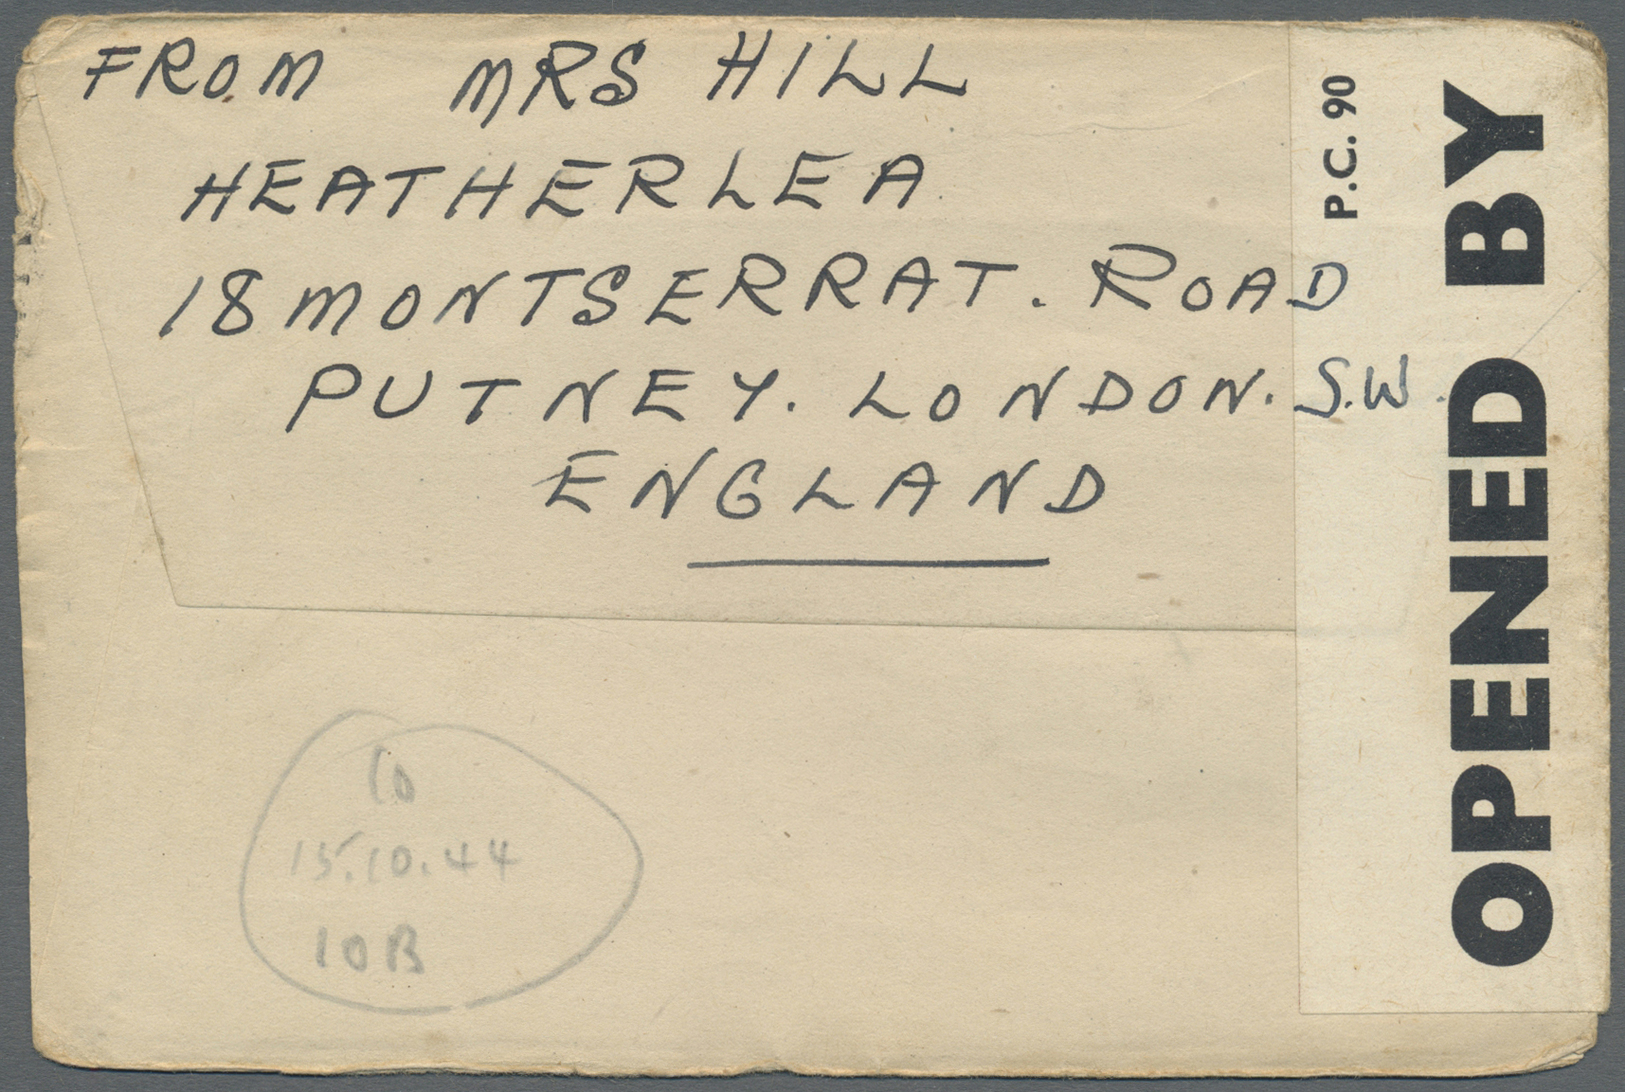 FROM MRS HILL
HEATHERLEA
18 MONTSERRAT. ROAD
PUTNEY. LONDON. S.W.
ENGLAND
P.C. 90
OPENED BY
10
15.10.44
10B